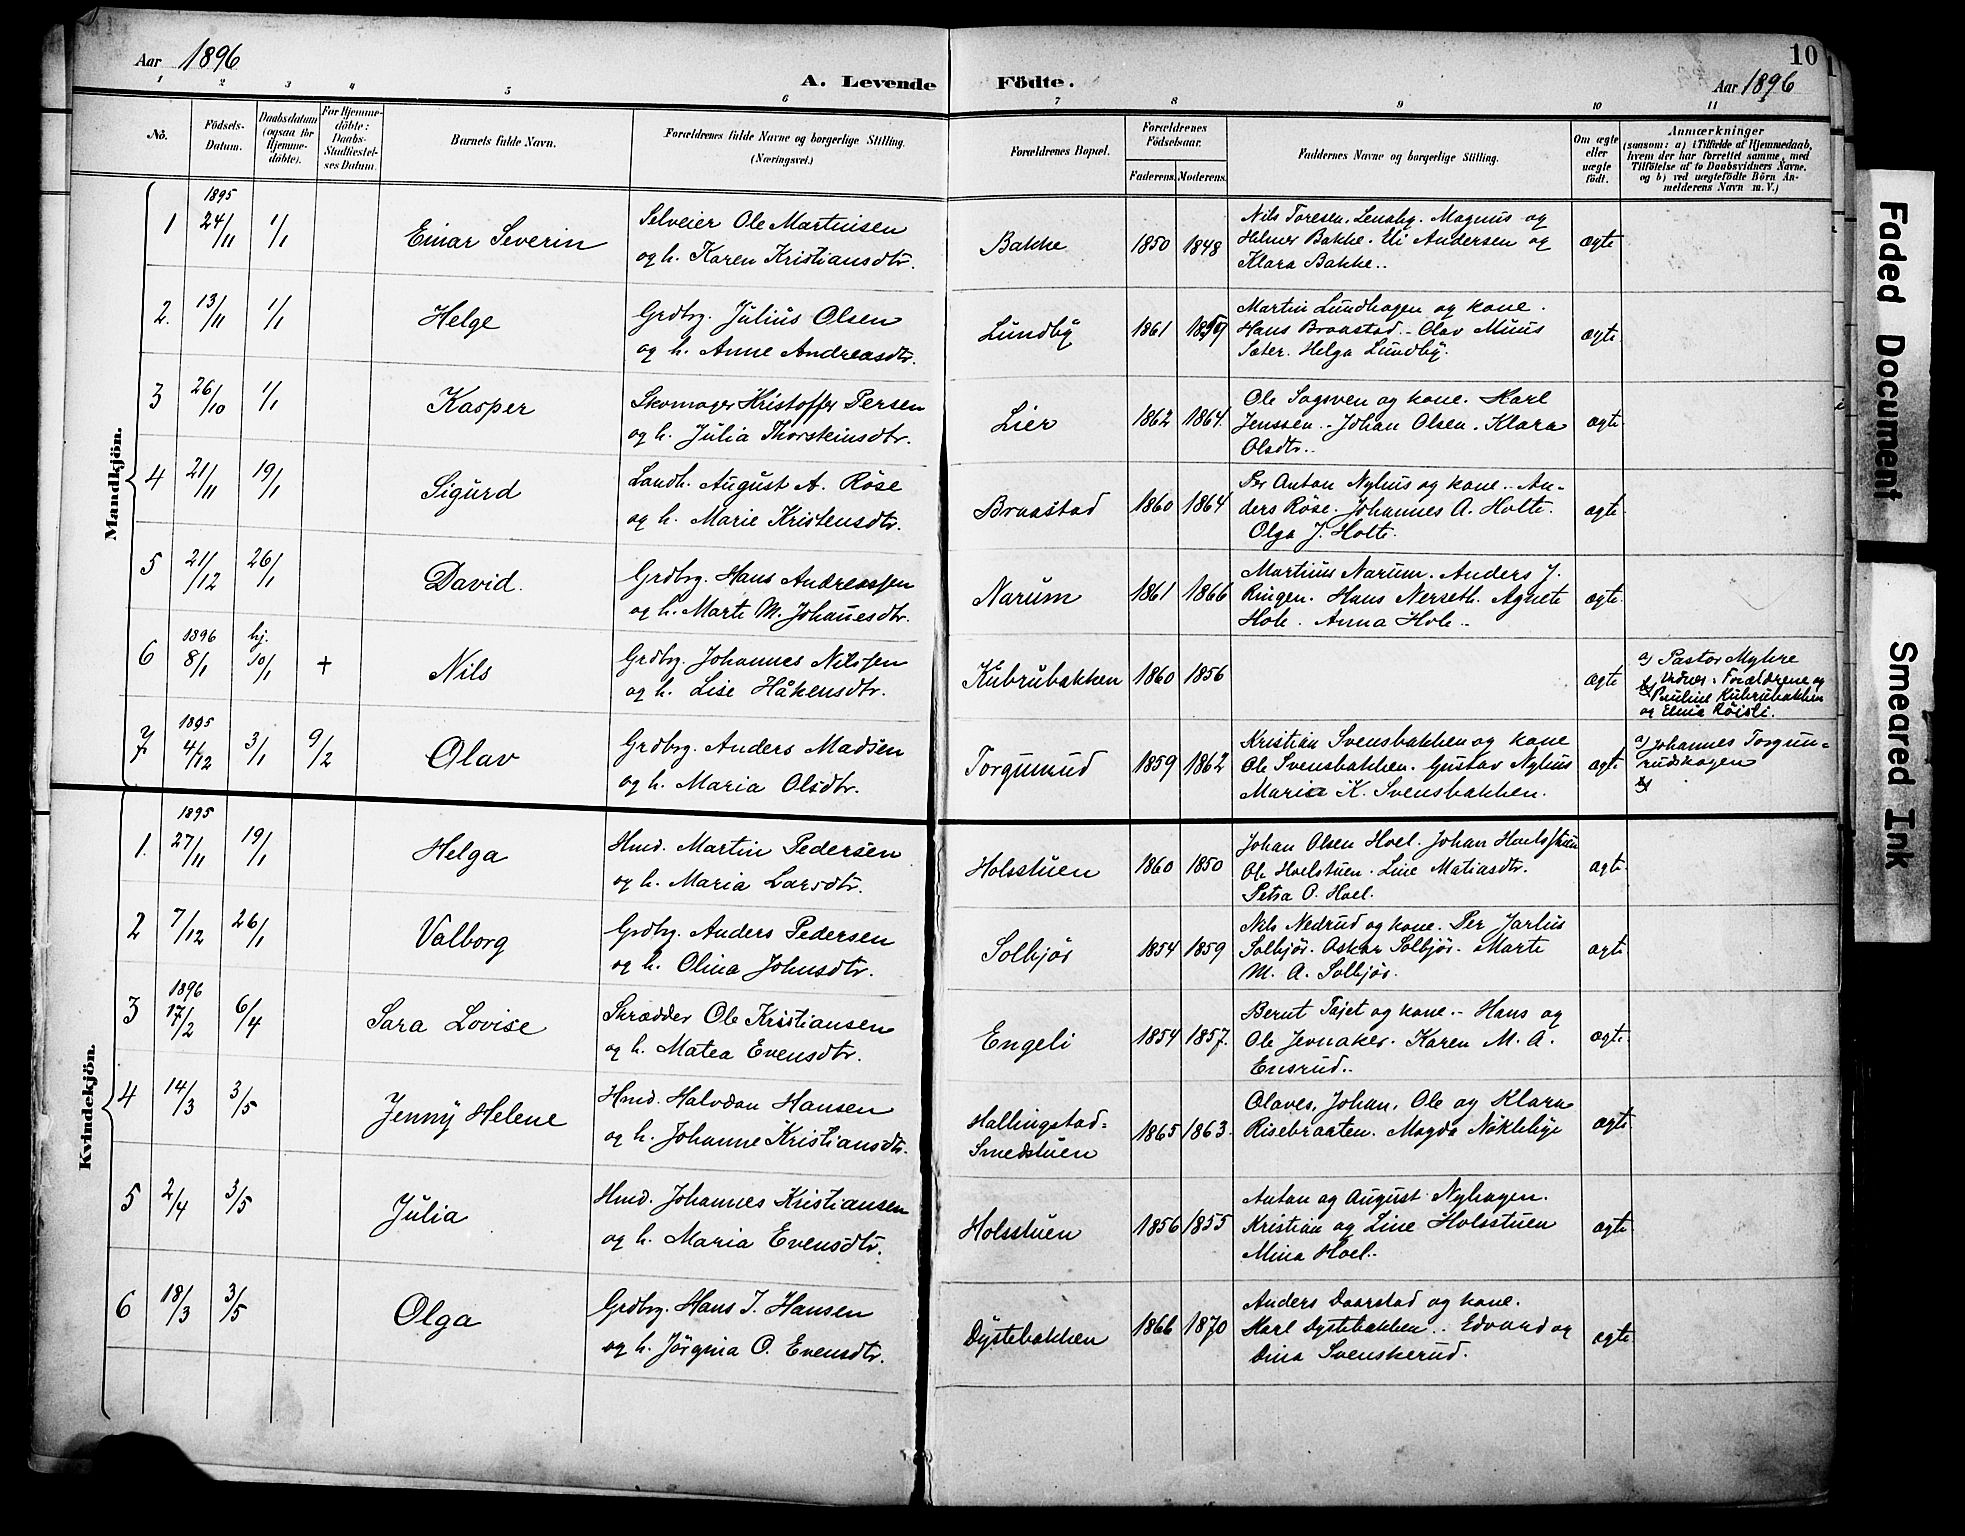 Aar 1896
A. Levende Fødte.
10
Aar 1896
1 2 3 4 5 6 7 8 9 10 11
No.
Födsels-
Datum.
Daabsdatum
(ogsaa for
Hjemme-
döbte).
For Hjemme-
döbte:
Daabs-
Stadfæstel-
ses Datum.
Barnets fulde Navn.
Forældrenes fulde Navne og borgerlige Stilling.
(Næringsvei.)
Forældrenes Bopæl.
Forældrenes
Födselsaar.
Faderens. Moderens.
Faddernes Navne og borgerlige Stilling.
Om ægte
eller
uægte
født.
Anmærkninger
(saasom: a) i Tilfælde af Hjemmedaab,
hvem der har forrettet samme, med
Tilföielse af to Daabsvidners Navne.
og b) ved uægtefødte Börn An-
melderens Navn m. V.)
Mandkjön.
1895
1 24/11 1/1 Einar Severin
Selveier Ole Martinisen
og h. Karen Kristiansdtr.
Bakke 1850 1848
Nils Toresen, Lensby. Magnus og
Helmer Bakke. Eli Andersen og
Klara Bakke..
ægte
2. 13/11 1/1 Helge
Grdbrg. Julius Olsen
og h. Anne Andreasdtr.
Lundby 1861 1859
Martin Lundhagen og kone.
Hans Braastad.- Olav Muus
Sæter. Helga Lundby.
ægte
3 26/10 1/1 Kasper
Skomager Kristoffer Persen
og h. Julia Thorsteinsdtr.
Lier 1862 1864.
Ole Sagsven og kone. Karl
Jenssen.- Johan Olsen. Klara
Olsdtr..
ægte
4 21/11 19/1 Sigurd
Landh. August A. Röse
og h. Marie Kristensdtr.
Braastad 1860 1864
Per Anton Nyhus og kone.. An-
ders Röse. Johannes A. Holte.
Olga J. Holte.
ægte
5 21/12 26/1 David.
Grdbrg. Hans Andreassen
og h. Marte M. Johanesdtr.
Narum 1861 1866
Martius Narum. Anders J.
Ringen. Hans Nerseth. Agnete
Hole. Anna Hole..
ægte
1896 hj.
6 8/1 10/1 + Nils
Grdbrg. Johannes Nilssen
og h. Lise Håkensdtr.
Kubrubakken 1860 1856
ægte
a) Pastor Myhre
Vidner: Forældrene og
Pauline Kubrubakken
og Elina Röisli.
1895
7. 4/12 3/1 9/2 Olav
Grdbrg. Anders Madsen
og h. Maria Olsdtr.
Torgunrud 1859 1862
Kristian Svensbakken og kone
Ole Svensbakken. Gustav Nyhus
Maria K. Svensbakken.
ægte
a) Johannes Torgun-
rudskogen
Kvindekjön.
1895
1. 27/11 19/1 Helga
Hmd. Martin Pedersen
og h. Maria Larsdtr.
Holsstuen 1860 1850
Johan Olsen Hoel. Johan Hoelsstuen
Ole Hoelstuen. Line Matiasdtr.
Petra O. Hoel.
ægte.
2 7/12 26/1 Valborg
Grdbrg. Anders Pedersen
og h. Olina Johnsdtr.
Solbjör 1854 1859
Nils Nedrud og kone. Per Jarlius
Solbjör. Oskar Solbjör. Marte
M. A. Solbjör.
ægte
1896
3 17/2 6/4 Sara Lovise
Skrædder Ole Kristiansen
og h. Matea Evensdtr.
Engeli 1854 1857.
Bernt Tajet og kone.- Hans og
Ole Jevnaker. Karen M. A.
Ensrud..
ægte
4 14/3 3/5 Jenny Helene
Hmd. Halvdan Hansen
og h. Johanne Kristiansdtr.
Hallingstad-
Smedstuen
1865 1863.
Olaves, Johan, Ole og Klara
Risebraaten. Magda Nöklebye
ægte
5 2/4 3/5 Julia
Hmd. Johannes Kristiansen
og h. Maria Evensdtr.
Holsstuen 1856 1855
Anton og August Nyhagen.
Kristian og Line Holsstuen
Mina Hoel..
ægte
6 18/3 3/5 Olga
Grdbrg. Hans J. Hansen
og h. Jörgina O. Evensdtr.
Dystebakken 1866 1870
Anders Daarstad og kone.
Karl Dystebakken.. Edvard og
Dina Svenskerud.
ægte
Faded Document
Smeared Ink